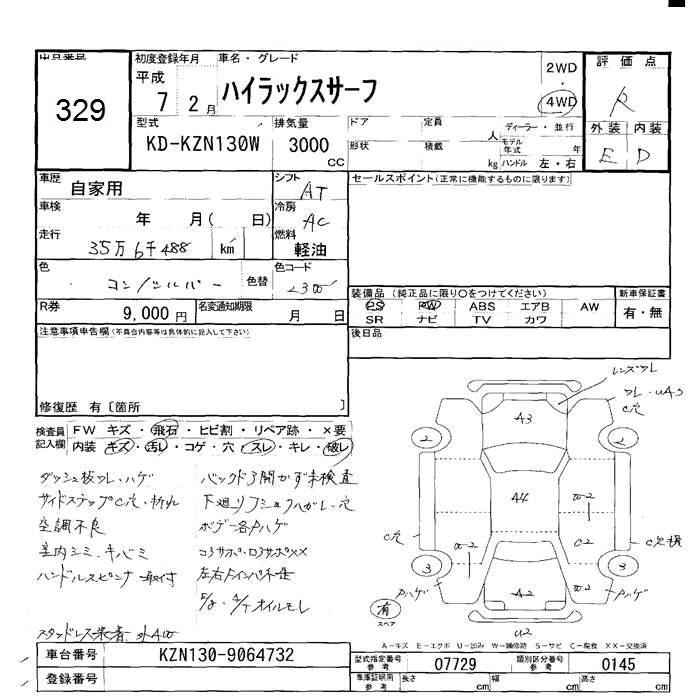 出品番号
329
初度登録年月 車名・グレード
平成 7 2月
ハイラックスサーフ
2WD
4WD
評価点
R
外装 内装
E D
型式
KD-KZN130W
排気量
3000 cc
ドア 定員 人
形状 積載 kg
ディーラー・並行
モデル年式 年
ハンドル 左・右
車歴 自家用
シフト AT
セールスポイント(正常に機能するものに限ります)
車検 年 月( 日)
冷房 AC
走行 35万6千488 km
燃料 軽油
色 コン/シルバー 色替
色コード
装備品 (純正品に限り○をつけてください)
新車保証書
有・無
PS PW ABS エアB AW
SR ナビ TV カワ
R券 9,000円
名変通知期限 月 日
後日品
注意事項申告欄(不具合内容等は具体的に記入して下さい)
修復歴 有〔箇所 〕
検査員記入欄
FW キズ・飛石・ヒビ割・リペア跡・×要
内装 キズ・汚レ・コゲ・穴・スレ・キレ・破レ
ダッシュ板ワレ・ハゲ
サイドステップC穴・折れ
空調不良
室内シミ・キバミ
ハンドルスピンナー取付
バックドア開かず未検査
下廻リブシューハガレ・穴
ボデー各Pハゲ
コアサポ・ロアサポXX
オイルモレ
レンズワレ
ワレ・UA3
C穴
A3
2
2
A4
W-2
C2
C穴
W-2
3
3
Pハゲ
A2
W-2
Pハゲ
U2
有
スペア
A-キズ E-エクボ U-凹み W-補修跡 S-サビ C-腐食 XX-交換済
車台番号 KZN130-9064732
登録番号
型式指定番号 参考 07729
類別区分番号 参考 0145
車庫証明用 参考 長さ cm 幅 cm 高さ cm